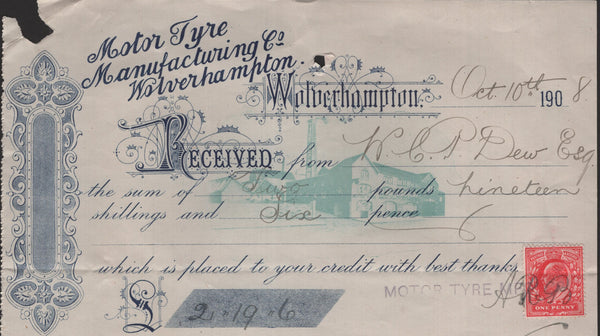 Motor Tyre
Manufacturing Co
Wolverhampton.
Wolverhampton. Oct. 10th 1908.
RECEIVED from W. C. P. Dew Esq
the sum of Two pounds nineteen
shillings and Six pence
which is placed to your credit with best thanks
£ 2 - 19 - 6
MOTOR TYRE
ONE PENNY